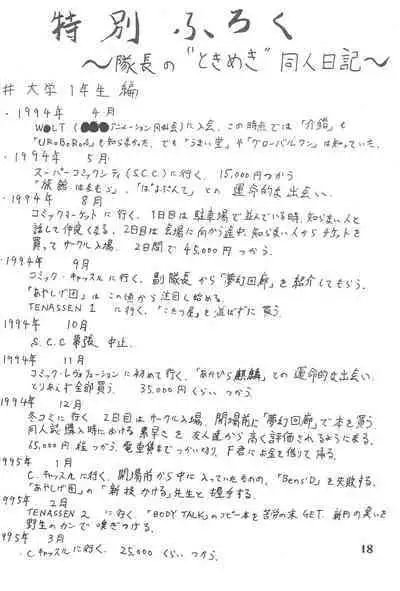 特別ふろく
〜隊長の"ときめき"同人日記〜
# 大学1年生 編
・1994年 4月
WOLT (●●●アニメーション同好会)に入会。この時点では「介錯」も
「URoBoRoS」も知らなかった。でも「うまい堂」や「グローバルワン」は知っていた。
・1994年 5月
スーパーコミックシティ(S.C.C)に行く。15,000円つかう
「旅館はなもら」、「ぱよぶんて」との 運命的な出会い。
・1994年 8月
コミックマーケットに行く。1日目は駐車場で並んでいる時、知らない人と
話して仲良くなる。2日目は会場に向かう途中、知らない人からチケットを
買ってサークル入場。2日間で45,000円つかう。
・1994年 9月
コミック・キャッスルに行く。副隊長から「夢幻回廊」を紹介してもらう。
「あやしげ団」はこの頃から注目し始める。
TENASSEN 1 に行く。「こたつ屋」を並ばずに買う。
1994年 10月
S.C.C幕張 中止。
1994年 11月
コミック・レヴォリューションに初めて行く。「あかぴら麒麟」との運命的な出会い。
とりあえず全部買う。 35,000円くらい つかう。
1994年 12月
冬コミに行く 2日目はサークル入場。開場前に「夢幻回廊」で本を買う
同人誌購入時における素早さを 友人達から高く評価されるようになる。
65,000円程つかう。電車賃までつかい切り、F君にお金を借りて帰る。
995年 1月
C.キャッスルに行く。開場前から中に入っていたものの、「Bens'D」を失敗する。
「あやしげ団」の「新技かける」先生と握手する。
995年 2月
TENASSEN 2 に行く。「BODY TALK」のコピー本を苦労の末 GET. 新刊の臭いを
野生のカンで嗅ぎつける。
995年 3月
・C.キャッスルに行く。 25,000 くらい つかう。
18